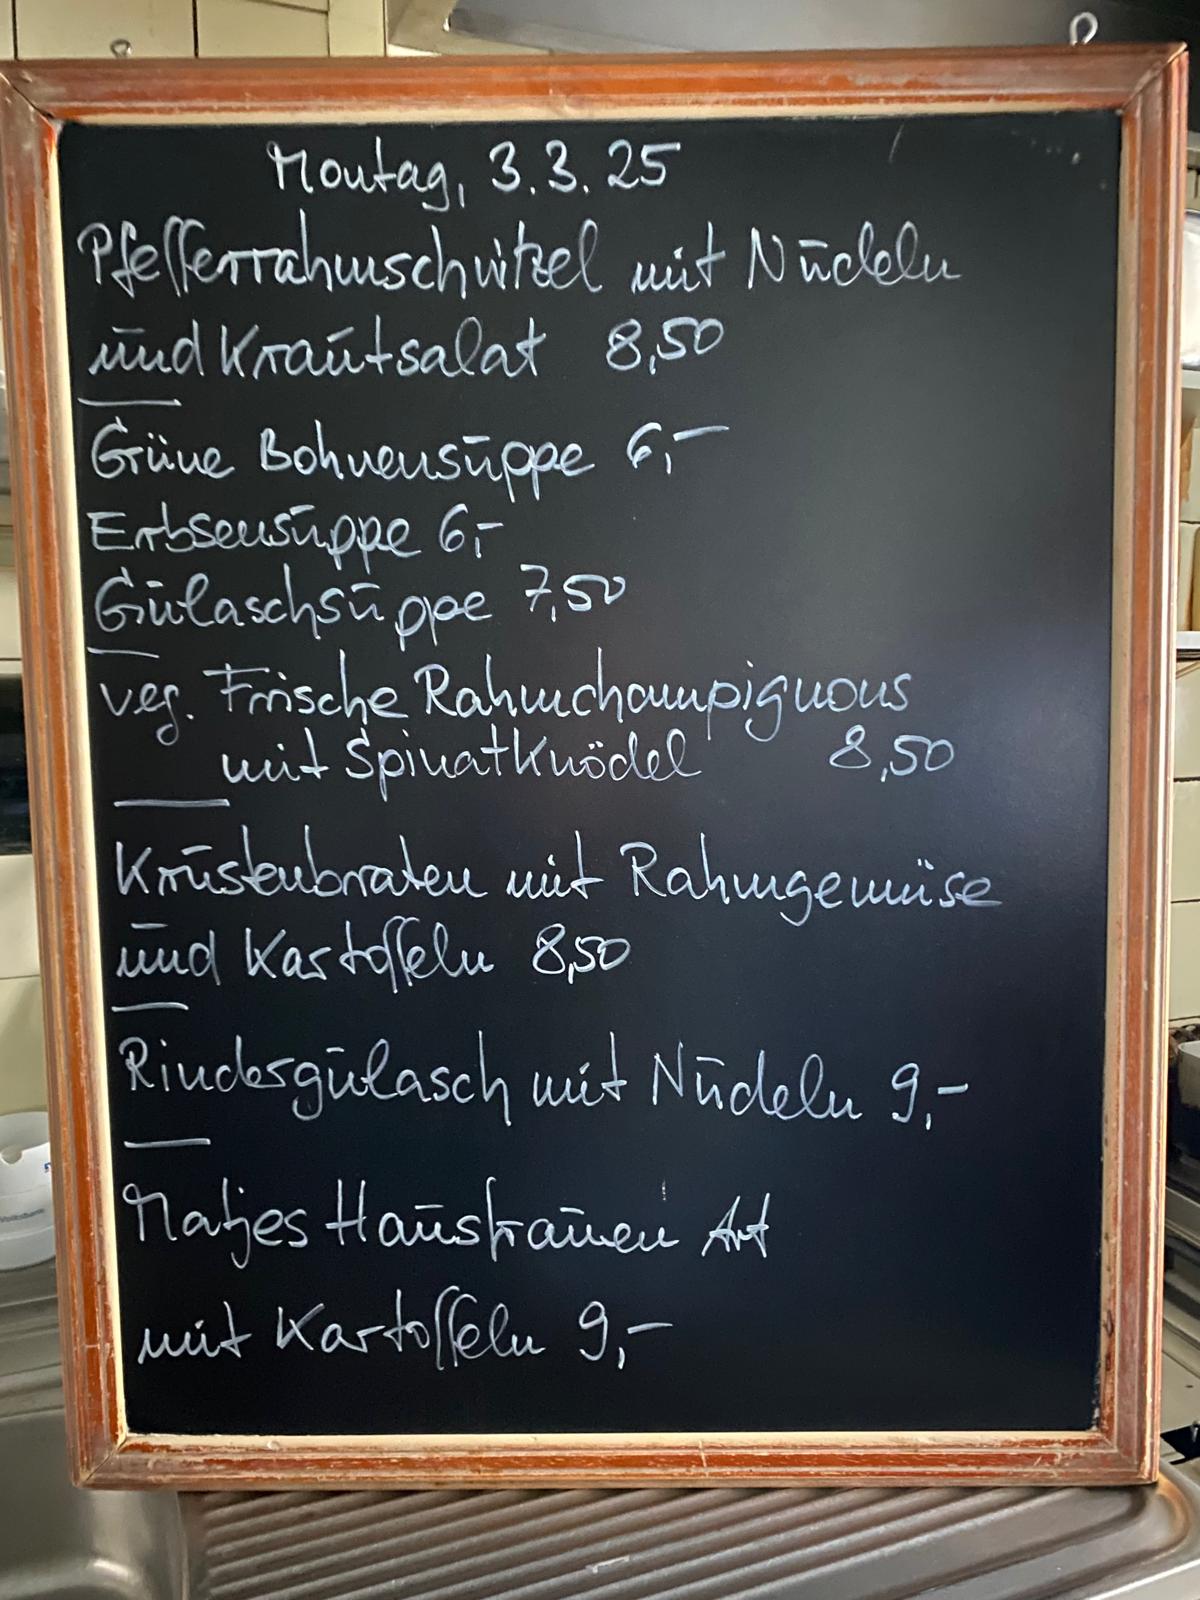 Montag, 3.3.25
Pfefferrahmschnitzel mit Nudeln
und Krautsalat 8,50
Grüne Bohnensuppe 6,-
Erbsensuppe 6,-
Gulaschsuppe 7,50
veg. Frische Rahmchampignons
mit Spinatknödel 8,50
Krustenbraten mit Rahmgemüse
und Kartoffeln 8,50
Rindergulasch mit Nudeln 9,-
Matjes Hausfrauen Art
mit Kartoffeln 9,-